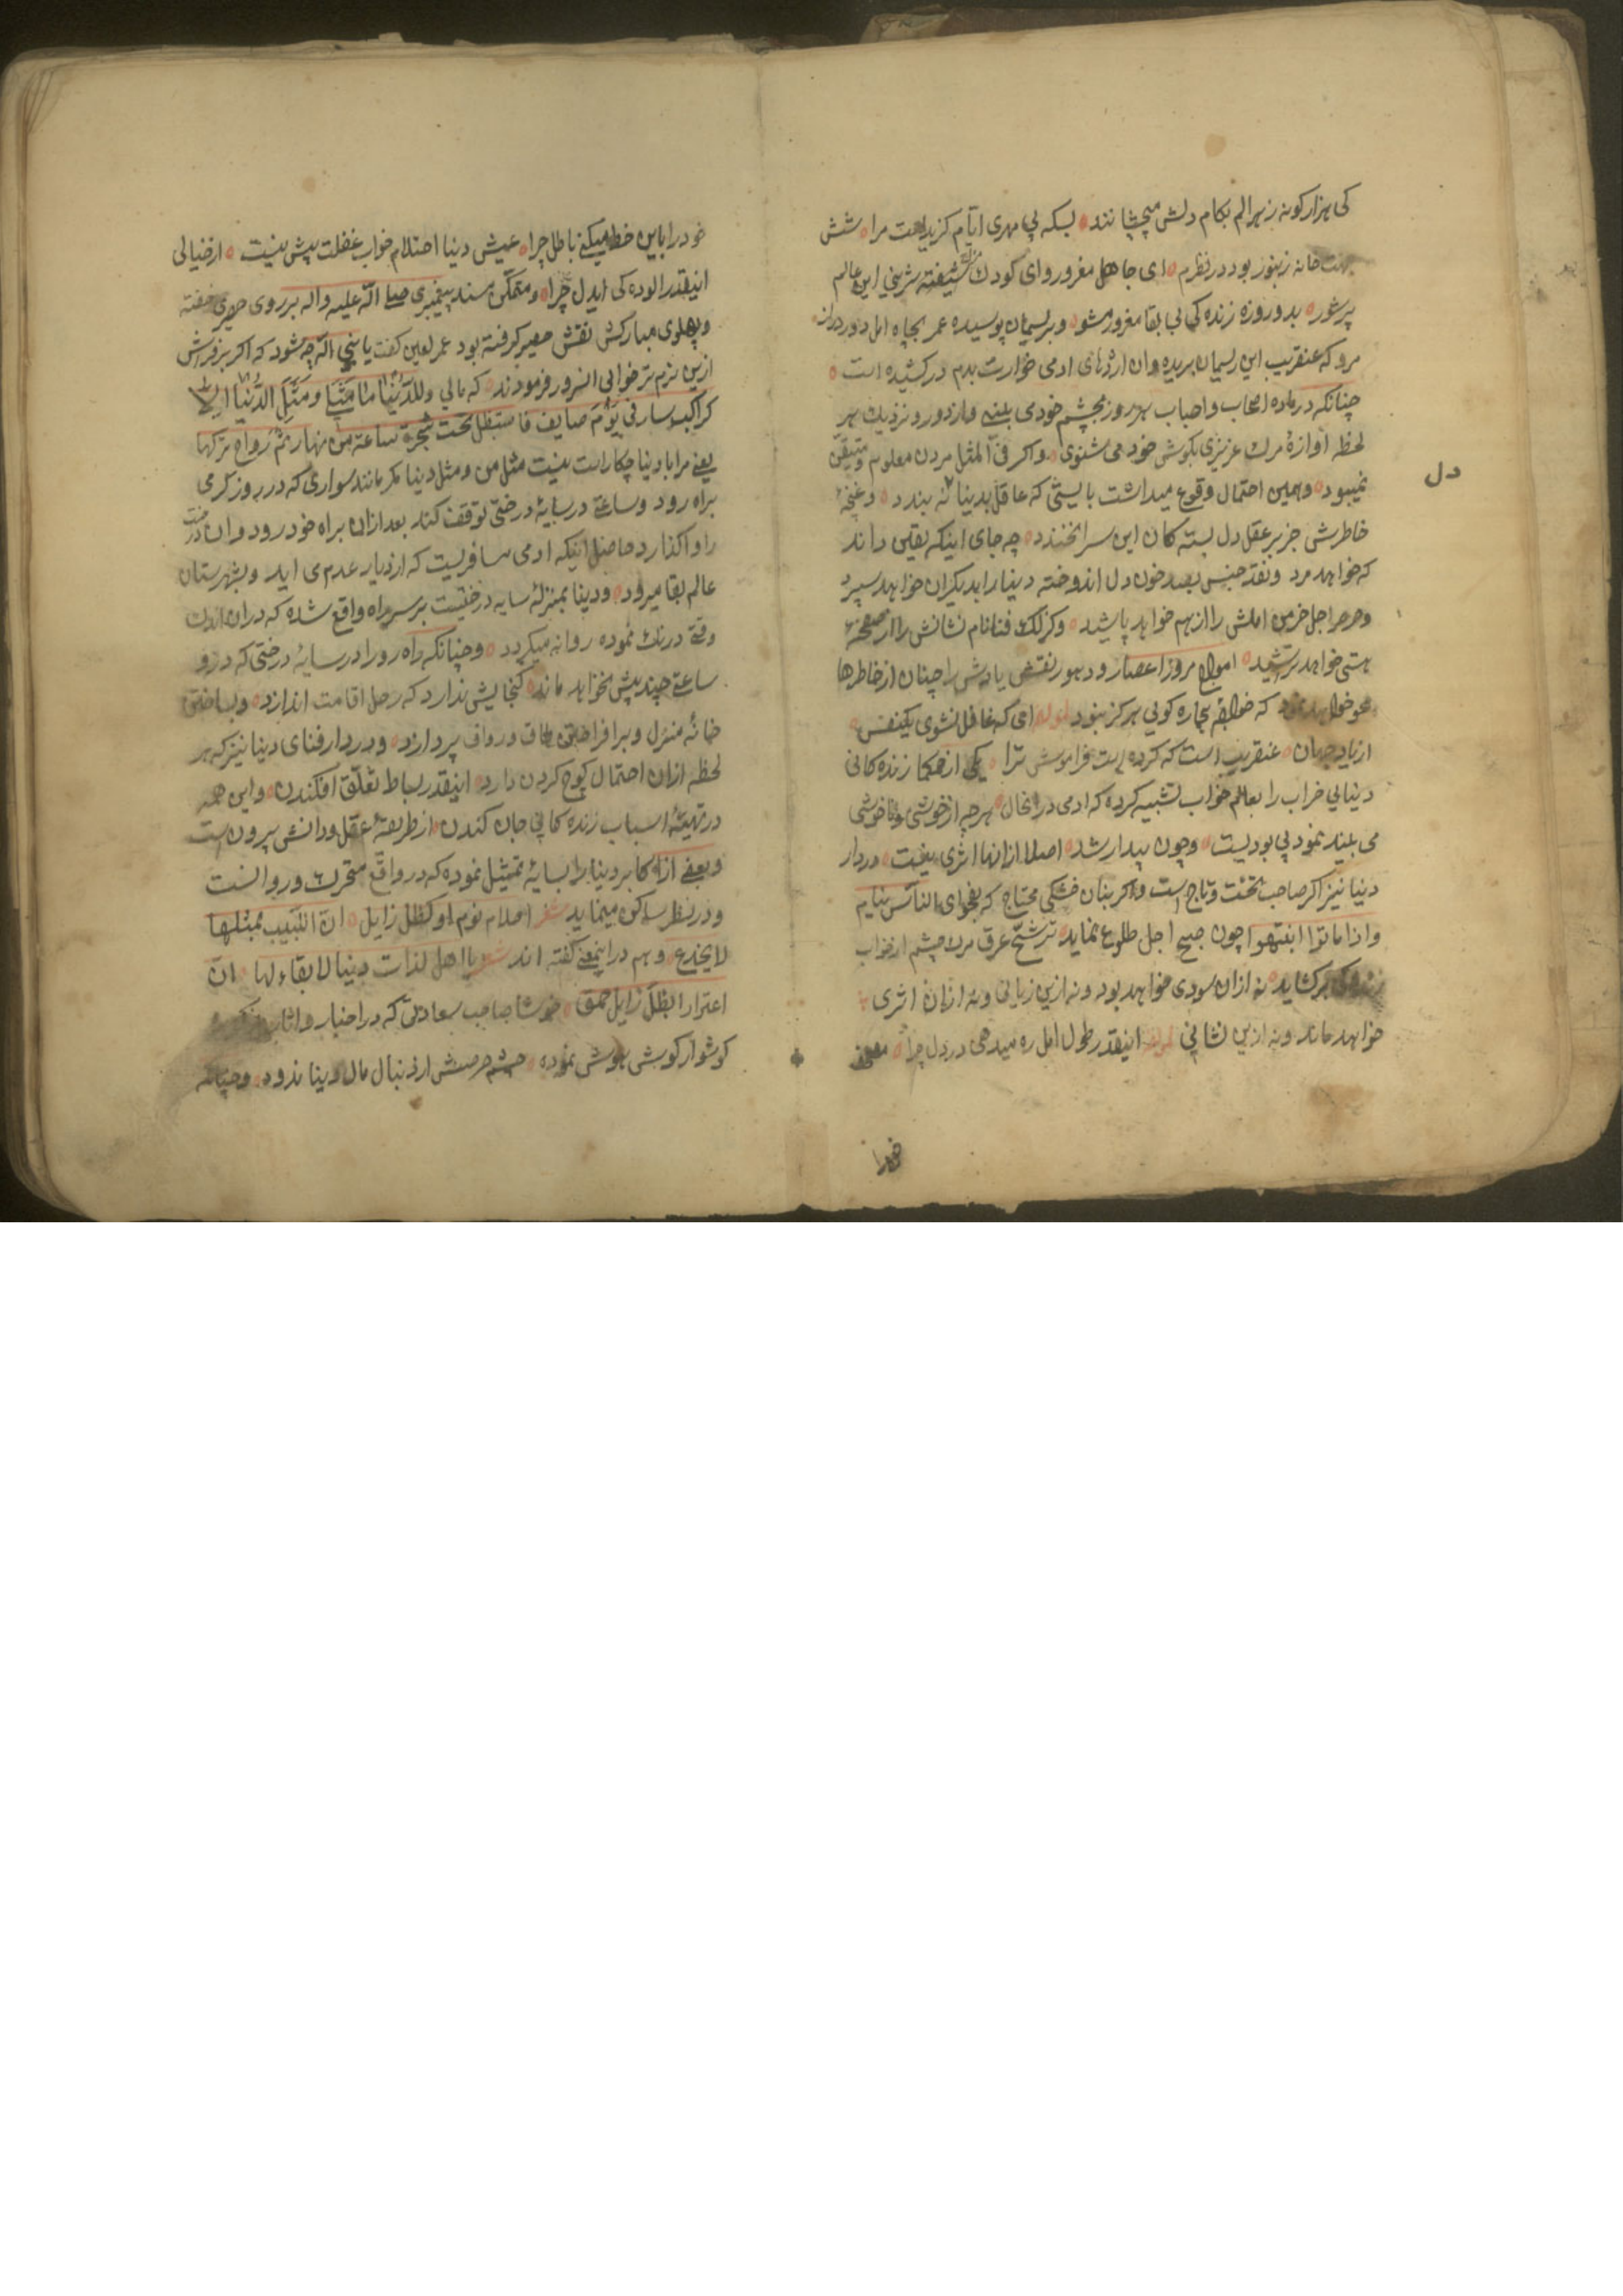 کی هزار کونه زهر الم بکام دلش میچشانند بسکه بی مهری ایام کزیده است مرا شش
جهت خانه زنبور بود در نظرم ای جاهل مغرور وای کودک شیفته شیرینی این عالم
پرشور بدو روزه زنده کی بی بقا مغرور مشو و بریسمان پوسیده عمر بچاه امل دور دراز
مرو که عنقریب این ریسمان بریده وان اژدهای ادمی خوارت بدم در کشیده است
چنانکه در ماده اصحاب و احباب هر روز بچشم خود می بینی و از دور و نزدیک هر
لحظه اوازهٔ مرک عزیزی بکوش خود می شنوی و اکر فی المثل مردن معلوم و متیقن
نمیبود و همین احتمال وقوع میداشت بایستی که عاقل بدینا نه بندد و غنچهٔ
دل
خاطرش جز بر عقل دل بسته کان این سرا نخندد چه جای اینکه یقین داند
که خواهد مرد و نقد جنس بصد خون دل اندوخته دینا را بدیکران خواهد سپرد
و صرصر اجل خرمن املش را از هم خواهد پاشید و کزلک فنا نام نشانش را از صفحهٔ
هستی خواهد تراشید امواج مرور اعصار و دهور نقش یادش را چنان از خاطرها
محو خواهد نمود که بیچاره کویی هرکز نبود لمولفه امی که غافل نشوی یکنفس
از یاد جهان عنقریب است که کرده است فراموش ترا یکی از حکما زنده کانی
دینای خراب را بعالم خواب تشبیه کرده که ادمی در انحال هرچه از خوشی و ناخوشی
می بیند نمود بی بودیست و چون بیدار شد اصلا از انها اثری نیست در دار
دینا نیز اکر صاحب تخت و تاج است و اکر بنان خشکی محتاج که بفحوای الناس نیام
و اذا ماتوا انتبهوا چون صبح اجل طلوع نماید ترشح عرق مرک چشم از خواب
زنده کی برکشاید نه ازان سودی خواهد بود و نه ازین زیانی و نه ازان اثری
خواهد ماند و نه ازین نشانی لمولفه اینقدر طول امل ره میدهی در دل چرا
خود را
خود را باین خط میکنی باطل چرا عیش دینا احتلام خواب غفلت پیش نیست از خیالی
اینقدر الوده کی ایدل چرا و متمکن مسند پیغمبری صلی الله علیه و اله بر روی حصیری خفته
و پهلوی مبارکش نقش حصیر کرفته بود عمر لعین کفت یا نبی الله چه شود که اکر بر فرش
ازین نرم تر خوابی انسرور فرمودند که مالی وللدنیا ما مثلی و مثل الدنیا الا
کراکب سار فی یوم صایف فاستظل تحت شجرة ساعة من نهار ثم رواح ترکها
یعنی مرا با دینا چکار است نیست مثل من و مثل دینا مکر مانند سواری که در روز کرمی
براه رود و ساعتی در سایهٔ درختی توقف کند بعد ازان براه خود رود و ان درخت
را واکذارد حاصل اینکه ادمی مسافریست که از دیار عدم می اید و بشهرستان
عالم بقا میرود و دینا بمنزلهٔ سایه درختیست بر سر راه واقع شده که در ان اندک
وقتی درنک نموده روانه میکردد و چنانکه راه رو را در سایهٔ درختی که در او
ساعتی چند پیش نخواهد ماند کنجایش ندارد که رحل اقامت اندازد و بساختن
خانهٔ منزل و برافراختن طاق و رواق پردازد و در دار فنای دینا نیز که هر
لحظه ازان احتمال کوچ کردن دارد اینقدر بساط تعلق افکندن و این همه
در تهیئهٔ اسباب زنده کانی جان کندن از طریقهٔ عقل و دانش بیرون است
و بعضی از اکابر دینا را بسایهٔ تمثیل نموده که در واقع متحرک و روانست
و در نظر ساکن مینماید شعر احلام نوم او کظل زایل ان اللبیب بمثلها
لا یخدع و هم در اینمعنی کفته اند شعر یا اهل لذات دینا لا بقاء لها ان
اغترارا بظل زایل حمق خوشا صاحب سعادتی که در اخبار و اثار
کوشوار کوش هوش نموده چشم حرصش از دنبال مال دینا ندود و چنانکه